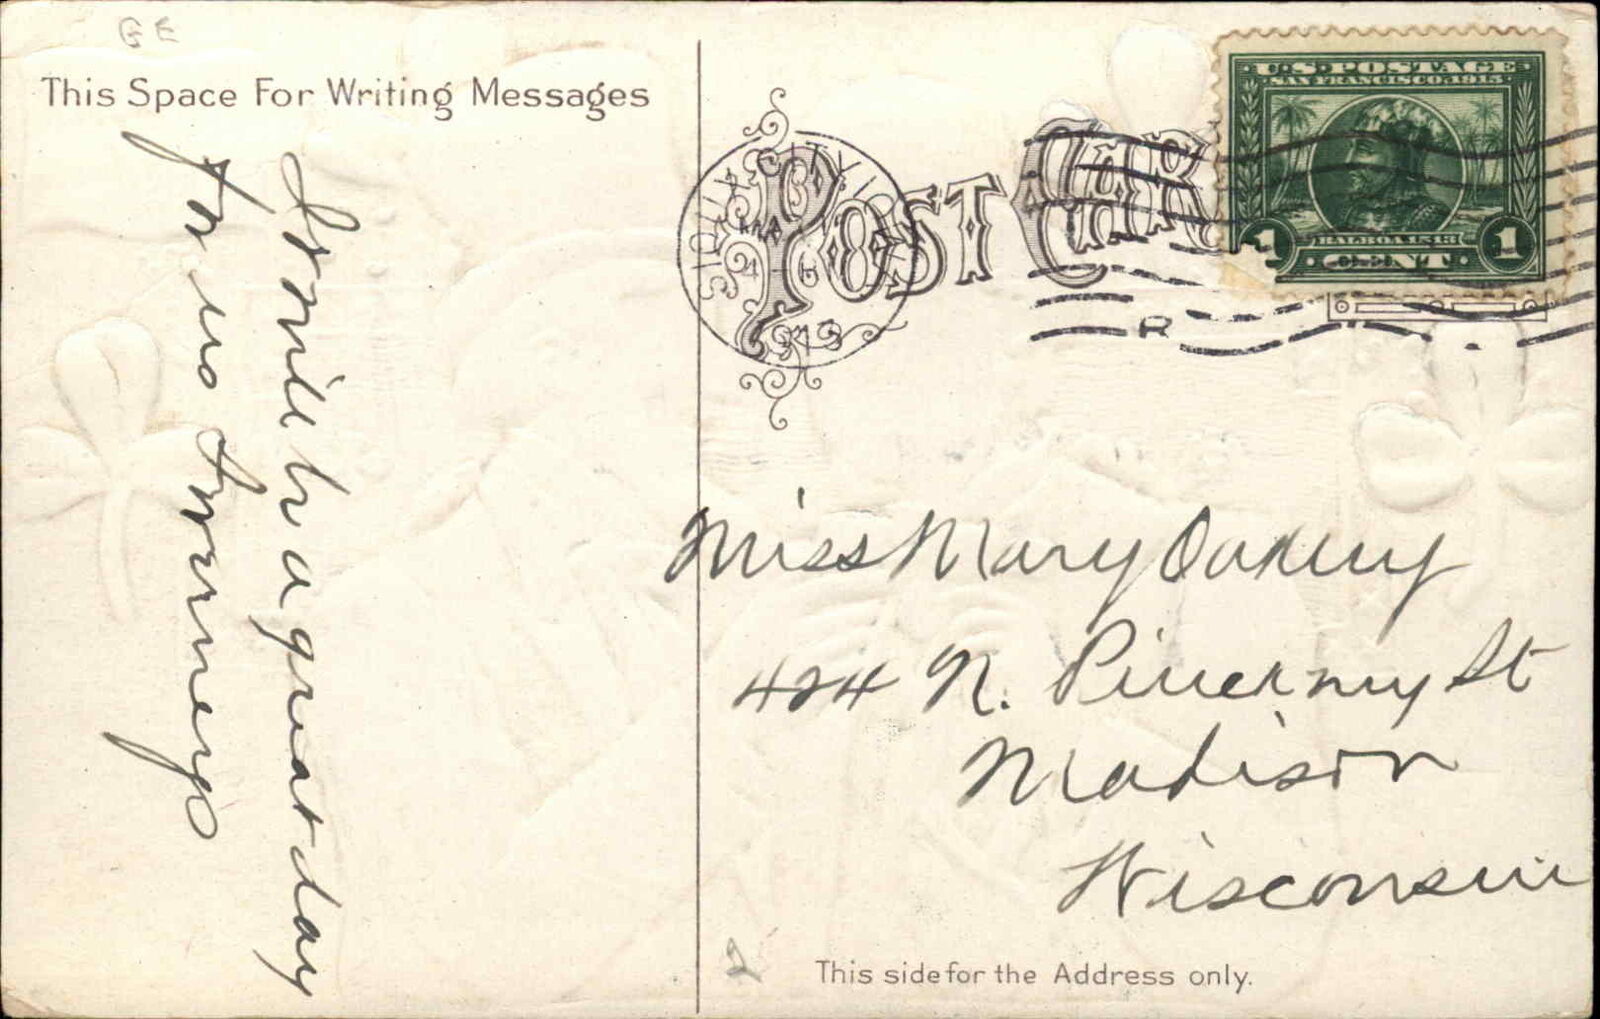 GE
This Space For Writing Messages
It will be a great day
for us
U.S. POSTAGE
SAN FRANCISCO 1915
BALBOA 1513
1 CENT 1
SIOUX CITY, IOWA
MAR
1913
POST CARD
R
Miss Mary
424 N. Pinckney St
Madison
Wisconsin
This side for the Address only.